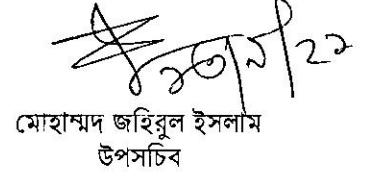 মোহাম্মদ জহিরুল ইসলাম
উপসচিব